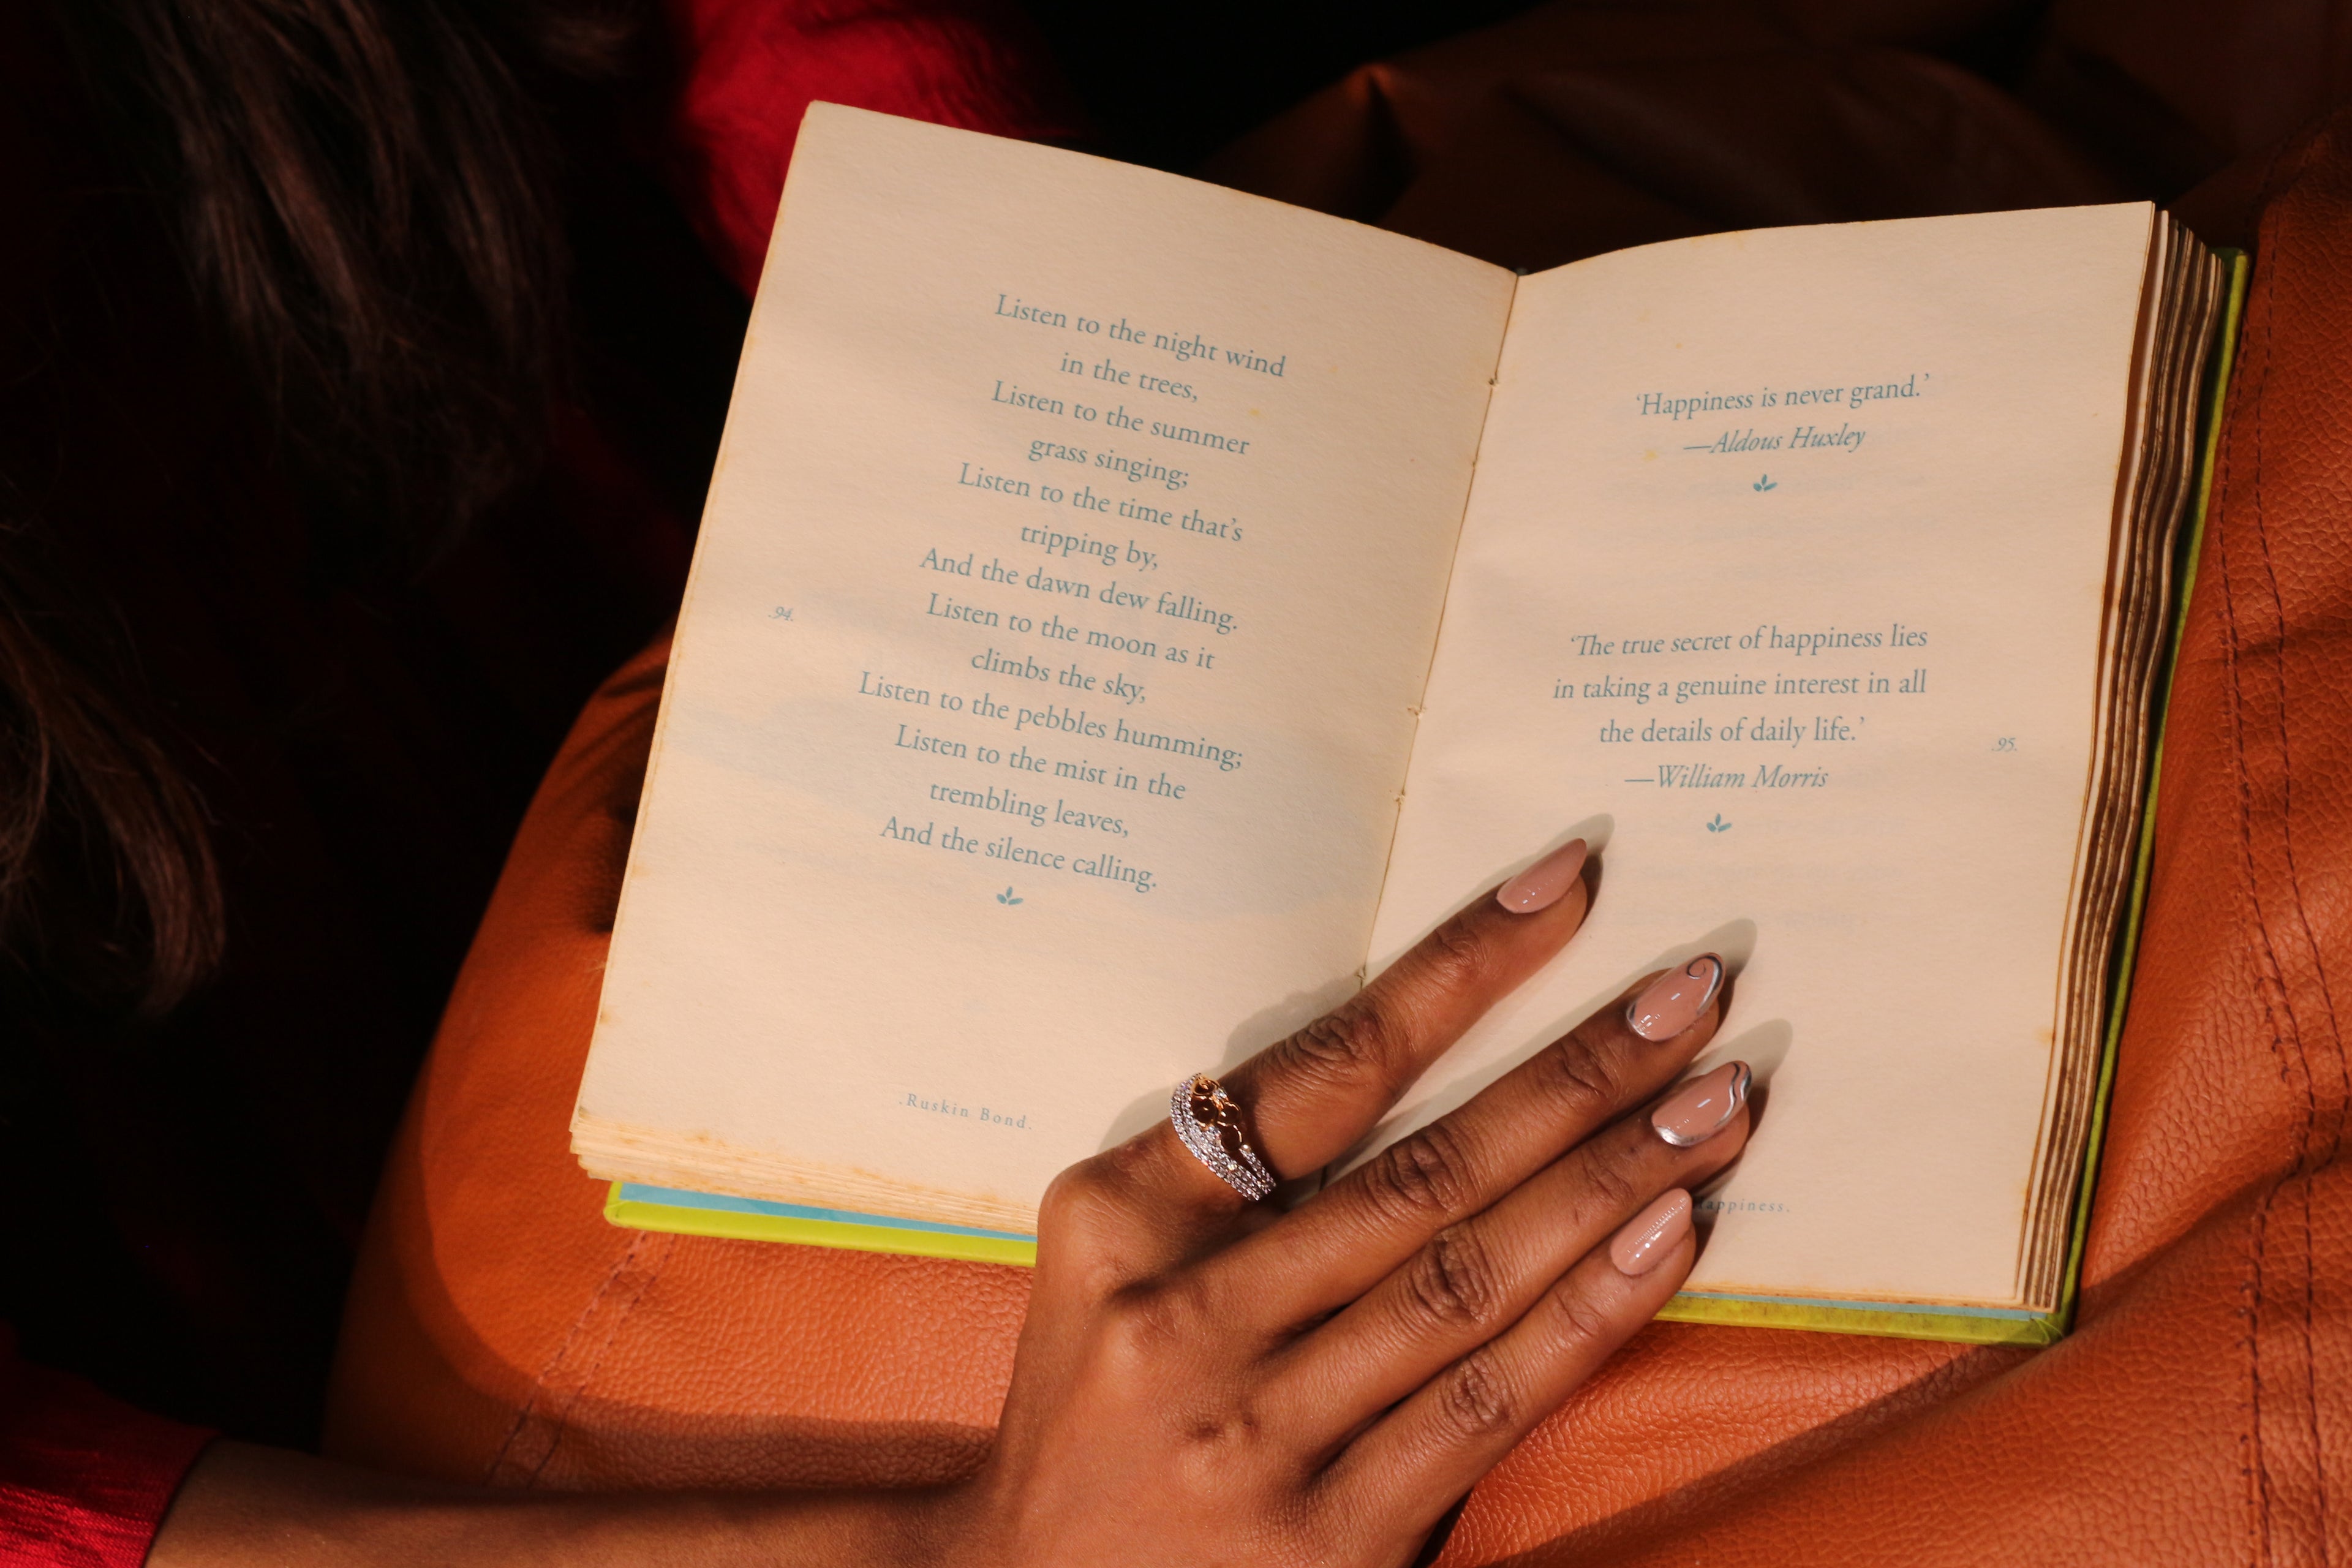 Listen to the night wind
in the trees,
Listen to the summer
grass singing;
Listen to the time that's
tripping by,
And the dawn dew falling.
Listen to the moon as it
climbs the sky,
Listen to the pebbles humming;
Listen to the mist in the
trembling leaves,
And the silence calling.
.94.
.Ruskin Bond.
‘Happiness is never grand.’
—Aldous Huxley
‘The true secret of happiness lies
in taking a genuine interest in all
the details of daily life.’
—William Morris
.95.
appiness.